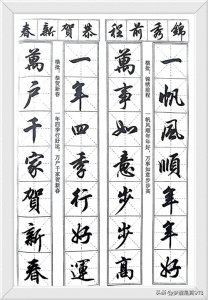 錦秀前程
一帆風順年年好
横批：锦绣前程 一帆风顺年年好，万事如意步步高
萬事如意步步高
恭賀新春
一年四季行好運
横批：恭贺新春 一年四季行好运，万户千家贺新春
萬户千家賀新春